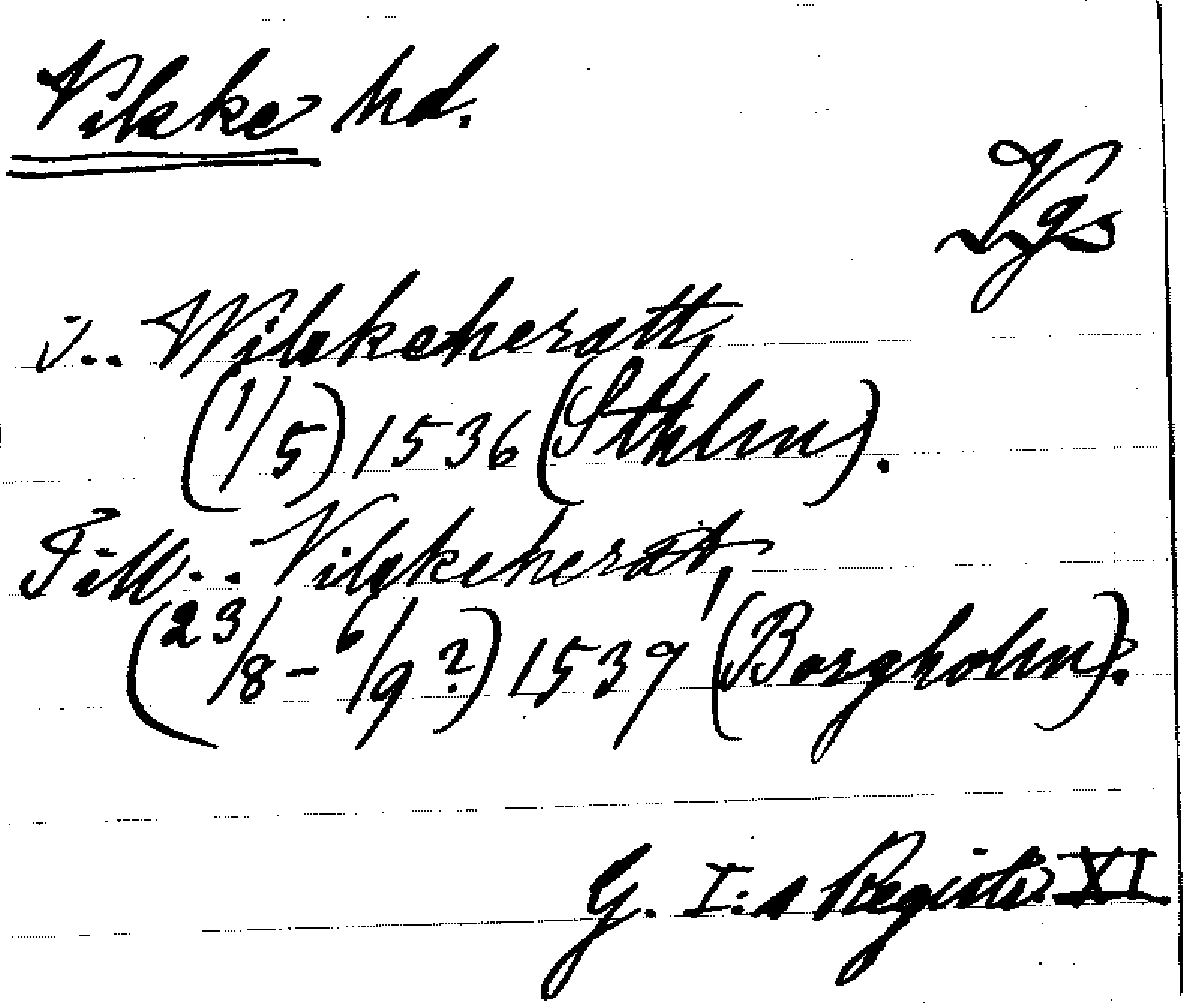 Vilske hd.
Vgs
i.. Wilskeheratt,
(1/5) 1536 (Sthlm).
Till.. Vilskeherat,
(23/8 - 6/9?) 1537 (Borgholm).
G. I:s Registr. XI